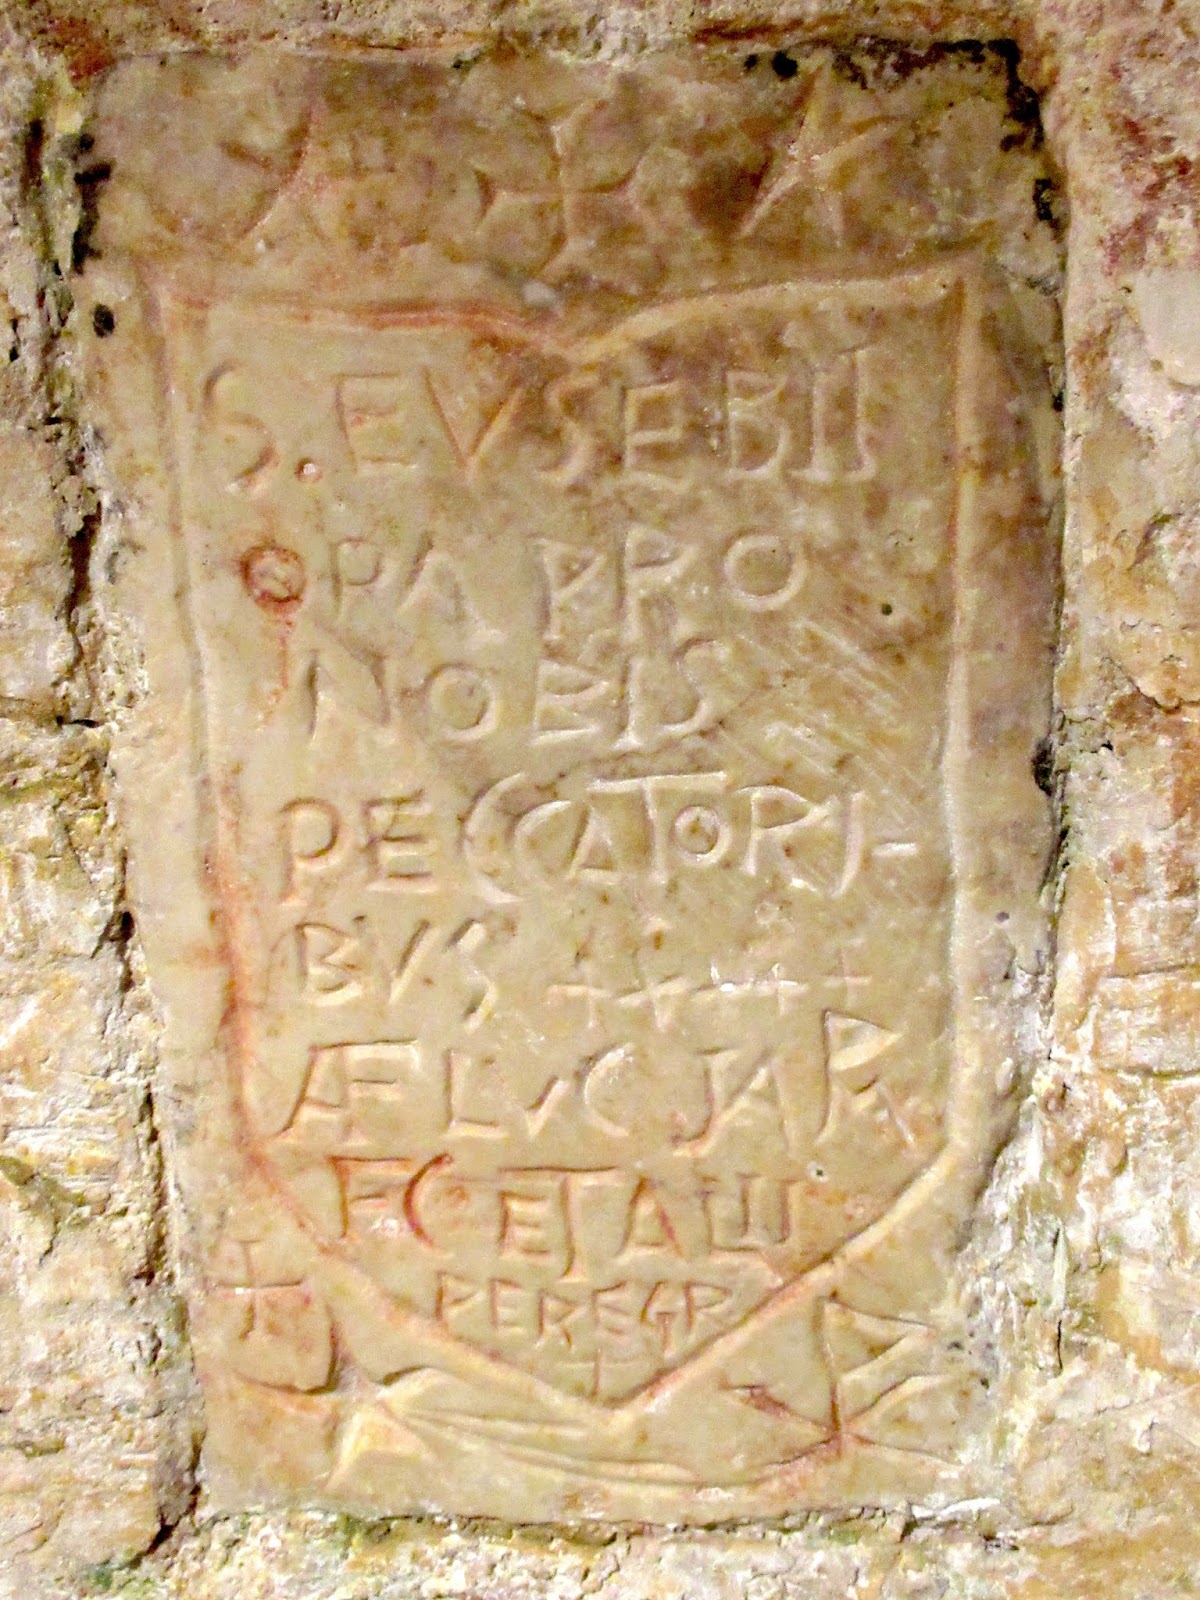 S. EVSEBII
OPA PPO
NOBIS
PECCATORI-
BVS +++++
ÆLVCJAR
FC ETALII
PEREGR